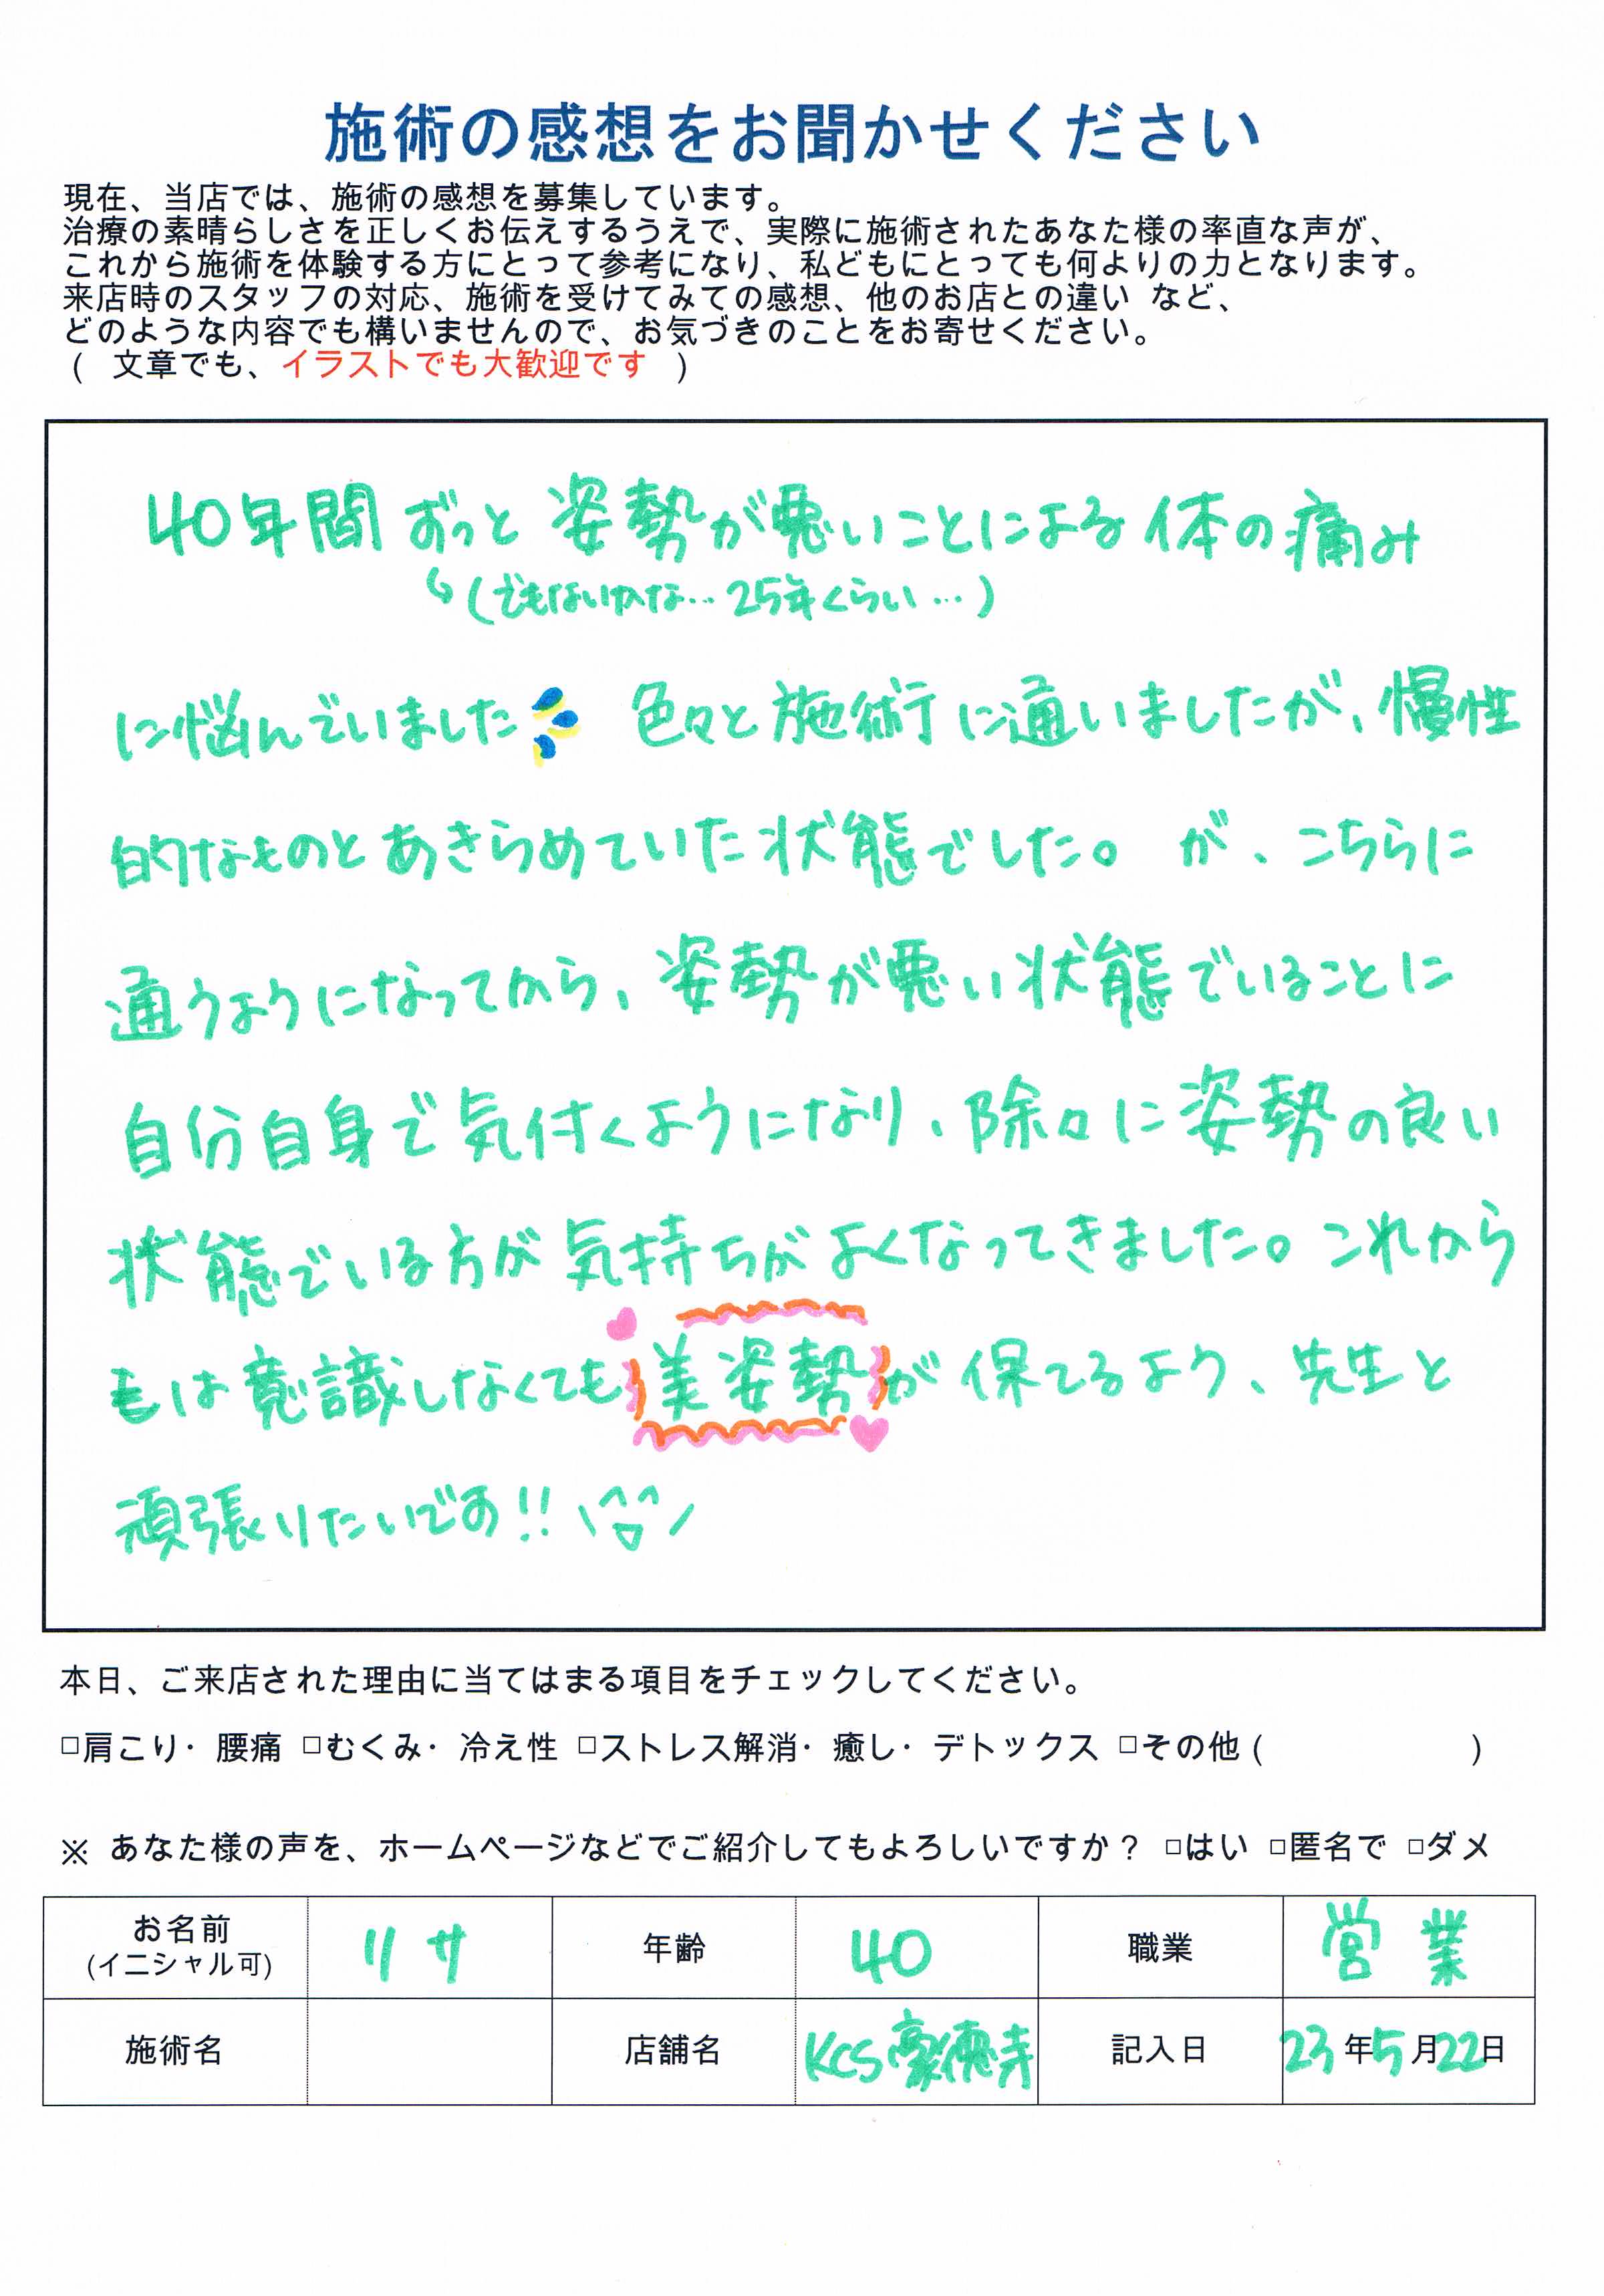 施術の感想をお聞かせください
現在、当店では、施術の感想を募集しています。
治療の素晴らしさを正しくお伝えするうえで、実際に施術されたあなた様の率直な声が、
これから施術を体験する方にとって参考になり、私どもにとっても何よりの力となります。
来店時のスタッフの対応、施術を受けてみての感想、他のお店との違い など、
どのような内容でも構いませんので、お気づきのことをお寄せください。
( 文章でも、イラストでも大歓迎です )
40年間ずっと姿勢が悪いことによる体の痛み
↳(でもないかな…25年くらい…)
に悩んでいました 色々と施術に通いましたが、慢性
的なものとあきらめていた状態でした。が、こちらに
通うようになってから、姿勢が悪い状態でいることに
自分自身で気付くようになり、除々に姿勢の良い
状態でいる方が気持ちがよくなってきました。これから
もは意識しなくても美姿勢が保てるよう、先生と
頑張りたいです!! \^▽^/
本日、ご来店された理由に当てはまる項目をチェックしてください。
□肩こり・腰痛 □むくみ・冷え性 □ストレス解消・癒し・デトックス □その他 ( )
※ あなた様の声を、ホームページなどでご紹介してもよろしいですか？ □はい □匿名で □ダメ
お名前 (イニシャル可) リサ 年齢 40 職業 営業
施術名 店舗名 KCS豪徳寺 記入日 23年5月22日